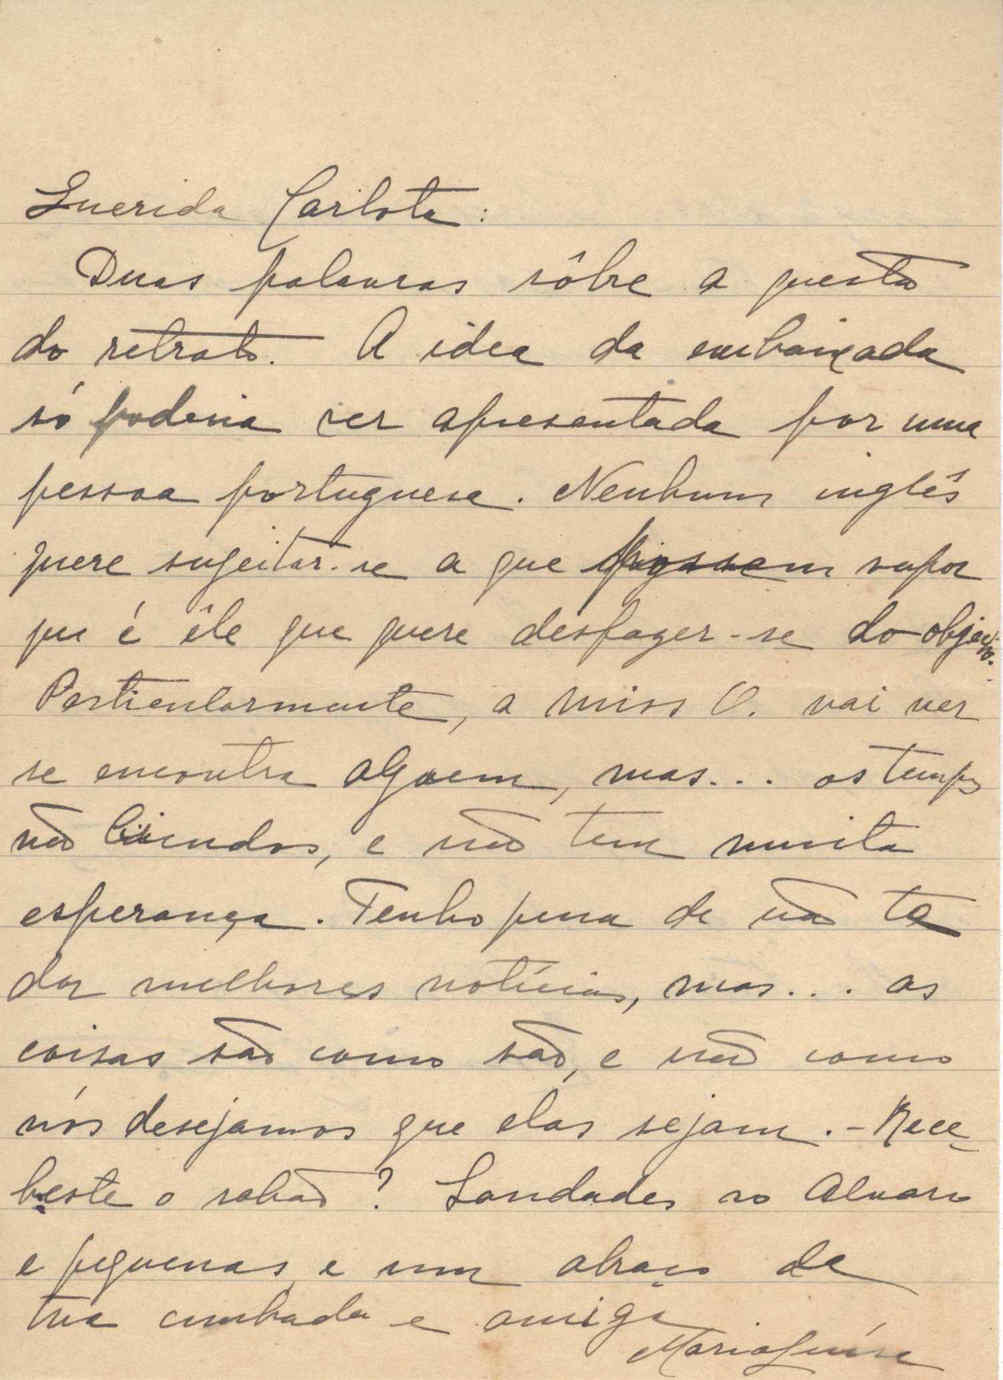 Querida Carlota:
Duas palavras sôbre a questão
do retrato. A idea da embaixada
só poderia ser apresentada por uma
pessoa portuguesa. Nenhum inglês
quere sugeitar-se a que possam supor
que é êle que quere desfazer-se do objecto.
Particularmente, a miss O. vai ver
se encontra alguem, mas... os tempos
não bicudos, e não tem muita
esperança. Tenho pena de não te
dar melhores notícias, mas... as
coisas são como são, e não como
nós desejamos que elas sejam. - Rece-
beste o sabão? Saudades ao Alvaro
e pequenas e um abraço de
tua cunhada e amiga
Maria Luísa